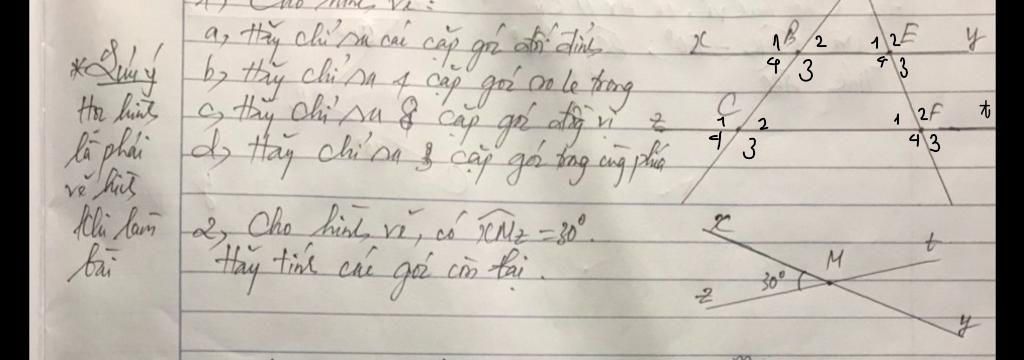 1, Cho hình vẽ:
a, Hãy chỉ ra các cặp góc đối đỉnh
b, Hãy chỉ ra 4 cặp góc so le trong
c, Hãy chỉ ra 8 cặp góc đồng vị
d, Hãy chỉ ra 3 cặp góc trong cùng phía
2, Cho hình vẽ, có xMz = 30°.
Hãy tính các góc còn lại.
* Lưu ý
là phải
vẽ hình
khi làm
bài
x 1 B 2 1 2 E y
4 3 4 3
z 1 C 2 1 2 F t
4 3 4 3
x
M t
30°
z
y